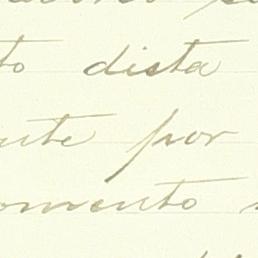 to dista
nte por
omento